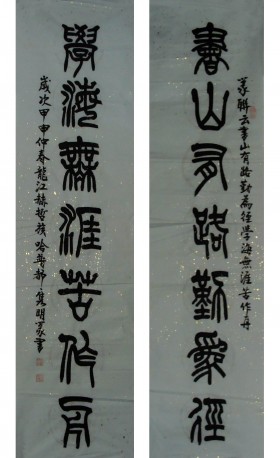 書山有路勤為徑
篆聯云書山有路勤為徑學海無涯苦作舟
學海無涯苦作舟
歲次甲申仲春龍江赫哲族